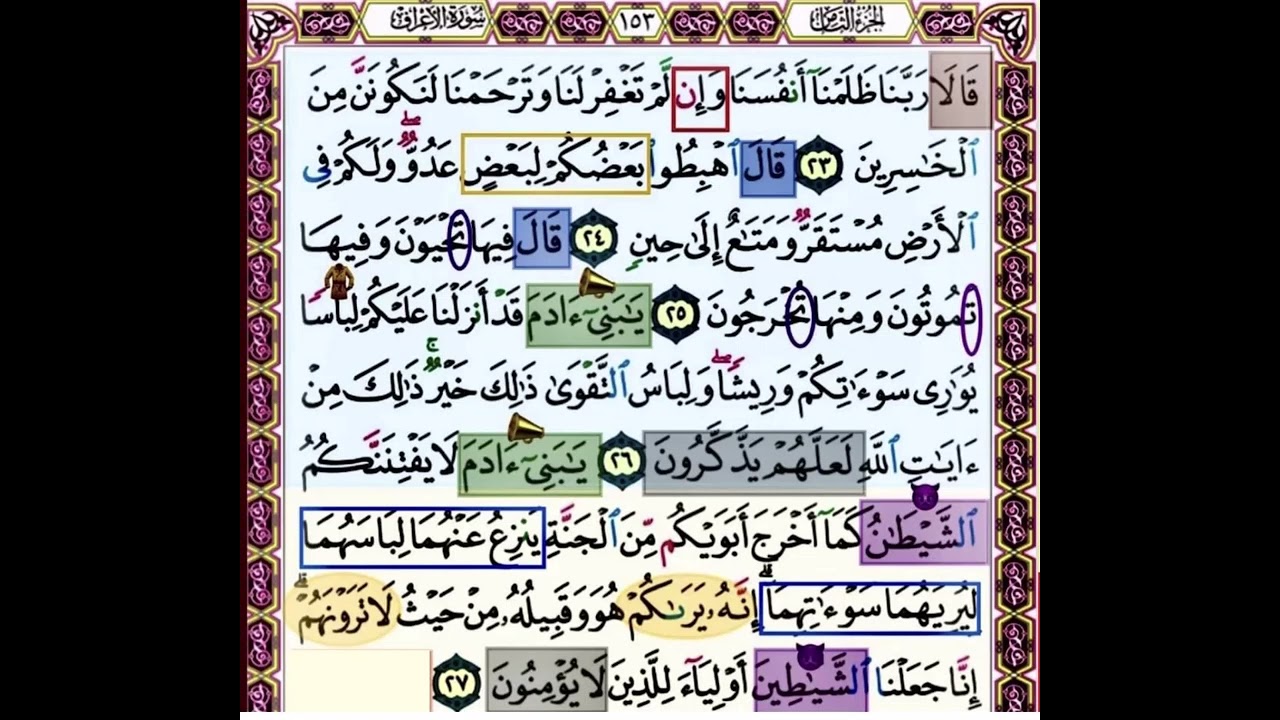 الجزء الثامن ١٥٣ سورة الأعراف
قَالَا رَبَّنَا ظَلَمْنَآ أَنفُسَنَا وَإِن لَّمْ تَغْفِرْ لَنَا وَتَرْحَمْنَا لَنَكُونَنَّ مِنَ
ٱلْخَٰسِرِينَ ٢٣ قَالَ ٱهْبِطُوا۟ بَعْضُكُمْ لِبَعْضٍ عَدُوٌّۖ وَلَكُمْ فِى
ٱلْأَرْضِ مُسْتَقَرٌّ وَمَتَٰعٌ إِلَىٰ حِينٍ ٢٤ قَالَ فِيهَا تَحْيَوْنَ وَفِيهَا
تَمُوتُونَ وَمِنْهَا تُخْرَجُونَ ٢٥ يَٰبَنِىٓ ءَادَمَ قَدْ أَنزَلْنَا عَلَيْكُمْ لِبَاسًا
يُوَٰرِى سَوْءَٰتِكُمْ وَرِيشًاۖ وَلِبَاسُ ٱلتَّقْوَىٰ ذَٰلِكَ خَيْرٌۚ ذَٰلِكَ مِنْ
ءَايَٰتِ ٱللَّهِ لَعَلَّهُمْ يَذَّكَّرُونَ ٢٦ يَٰبَنِىٓ ءَادَمَ لَا يَفْتِنَنَّكُمُ
ٱلشَّيْطَٰنُ كَمَآ أَخْرَجَ أَبَوَيْكُم مِّنَ ٱلْجَنَّةِ يَنزِعُ عَنْهُمَا لِبَاسَهُمَا
لِيُرِيَهُمَا سَوْءَٰتِهِمَآۗ إِنَّهُۥ يَرَىٰكُمْ هُوَ وَقَبِيلُهُۥ مِنْ حَيْثُ لَا تَرَوْنَهُمْۗ
إِنَّا جَعَلْنَا ٱلشَّيَٰطِينَ أَوْلِيَآءَ لِلَّذِينَ لَا يُؤْمِنُونَ ٢٧